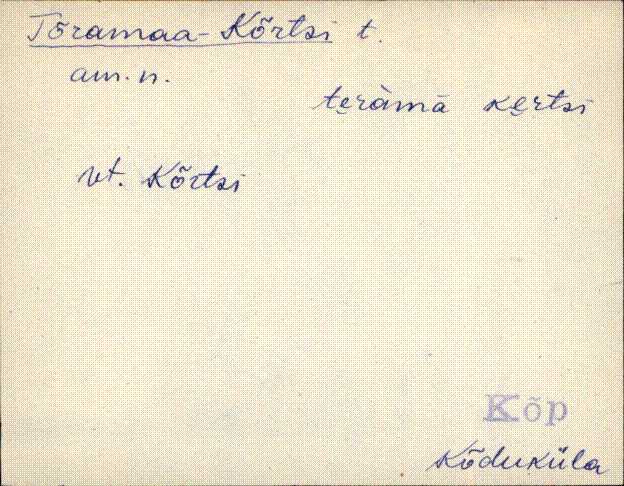 Tõramaa-Kõrtsi t.
am. n.
te̮ràmā ke̮rtsi
vt. Kõrtsi
Kõp
Kõduküla